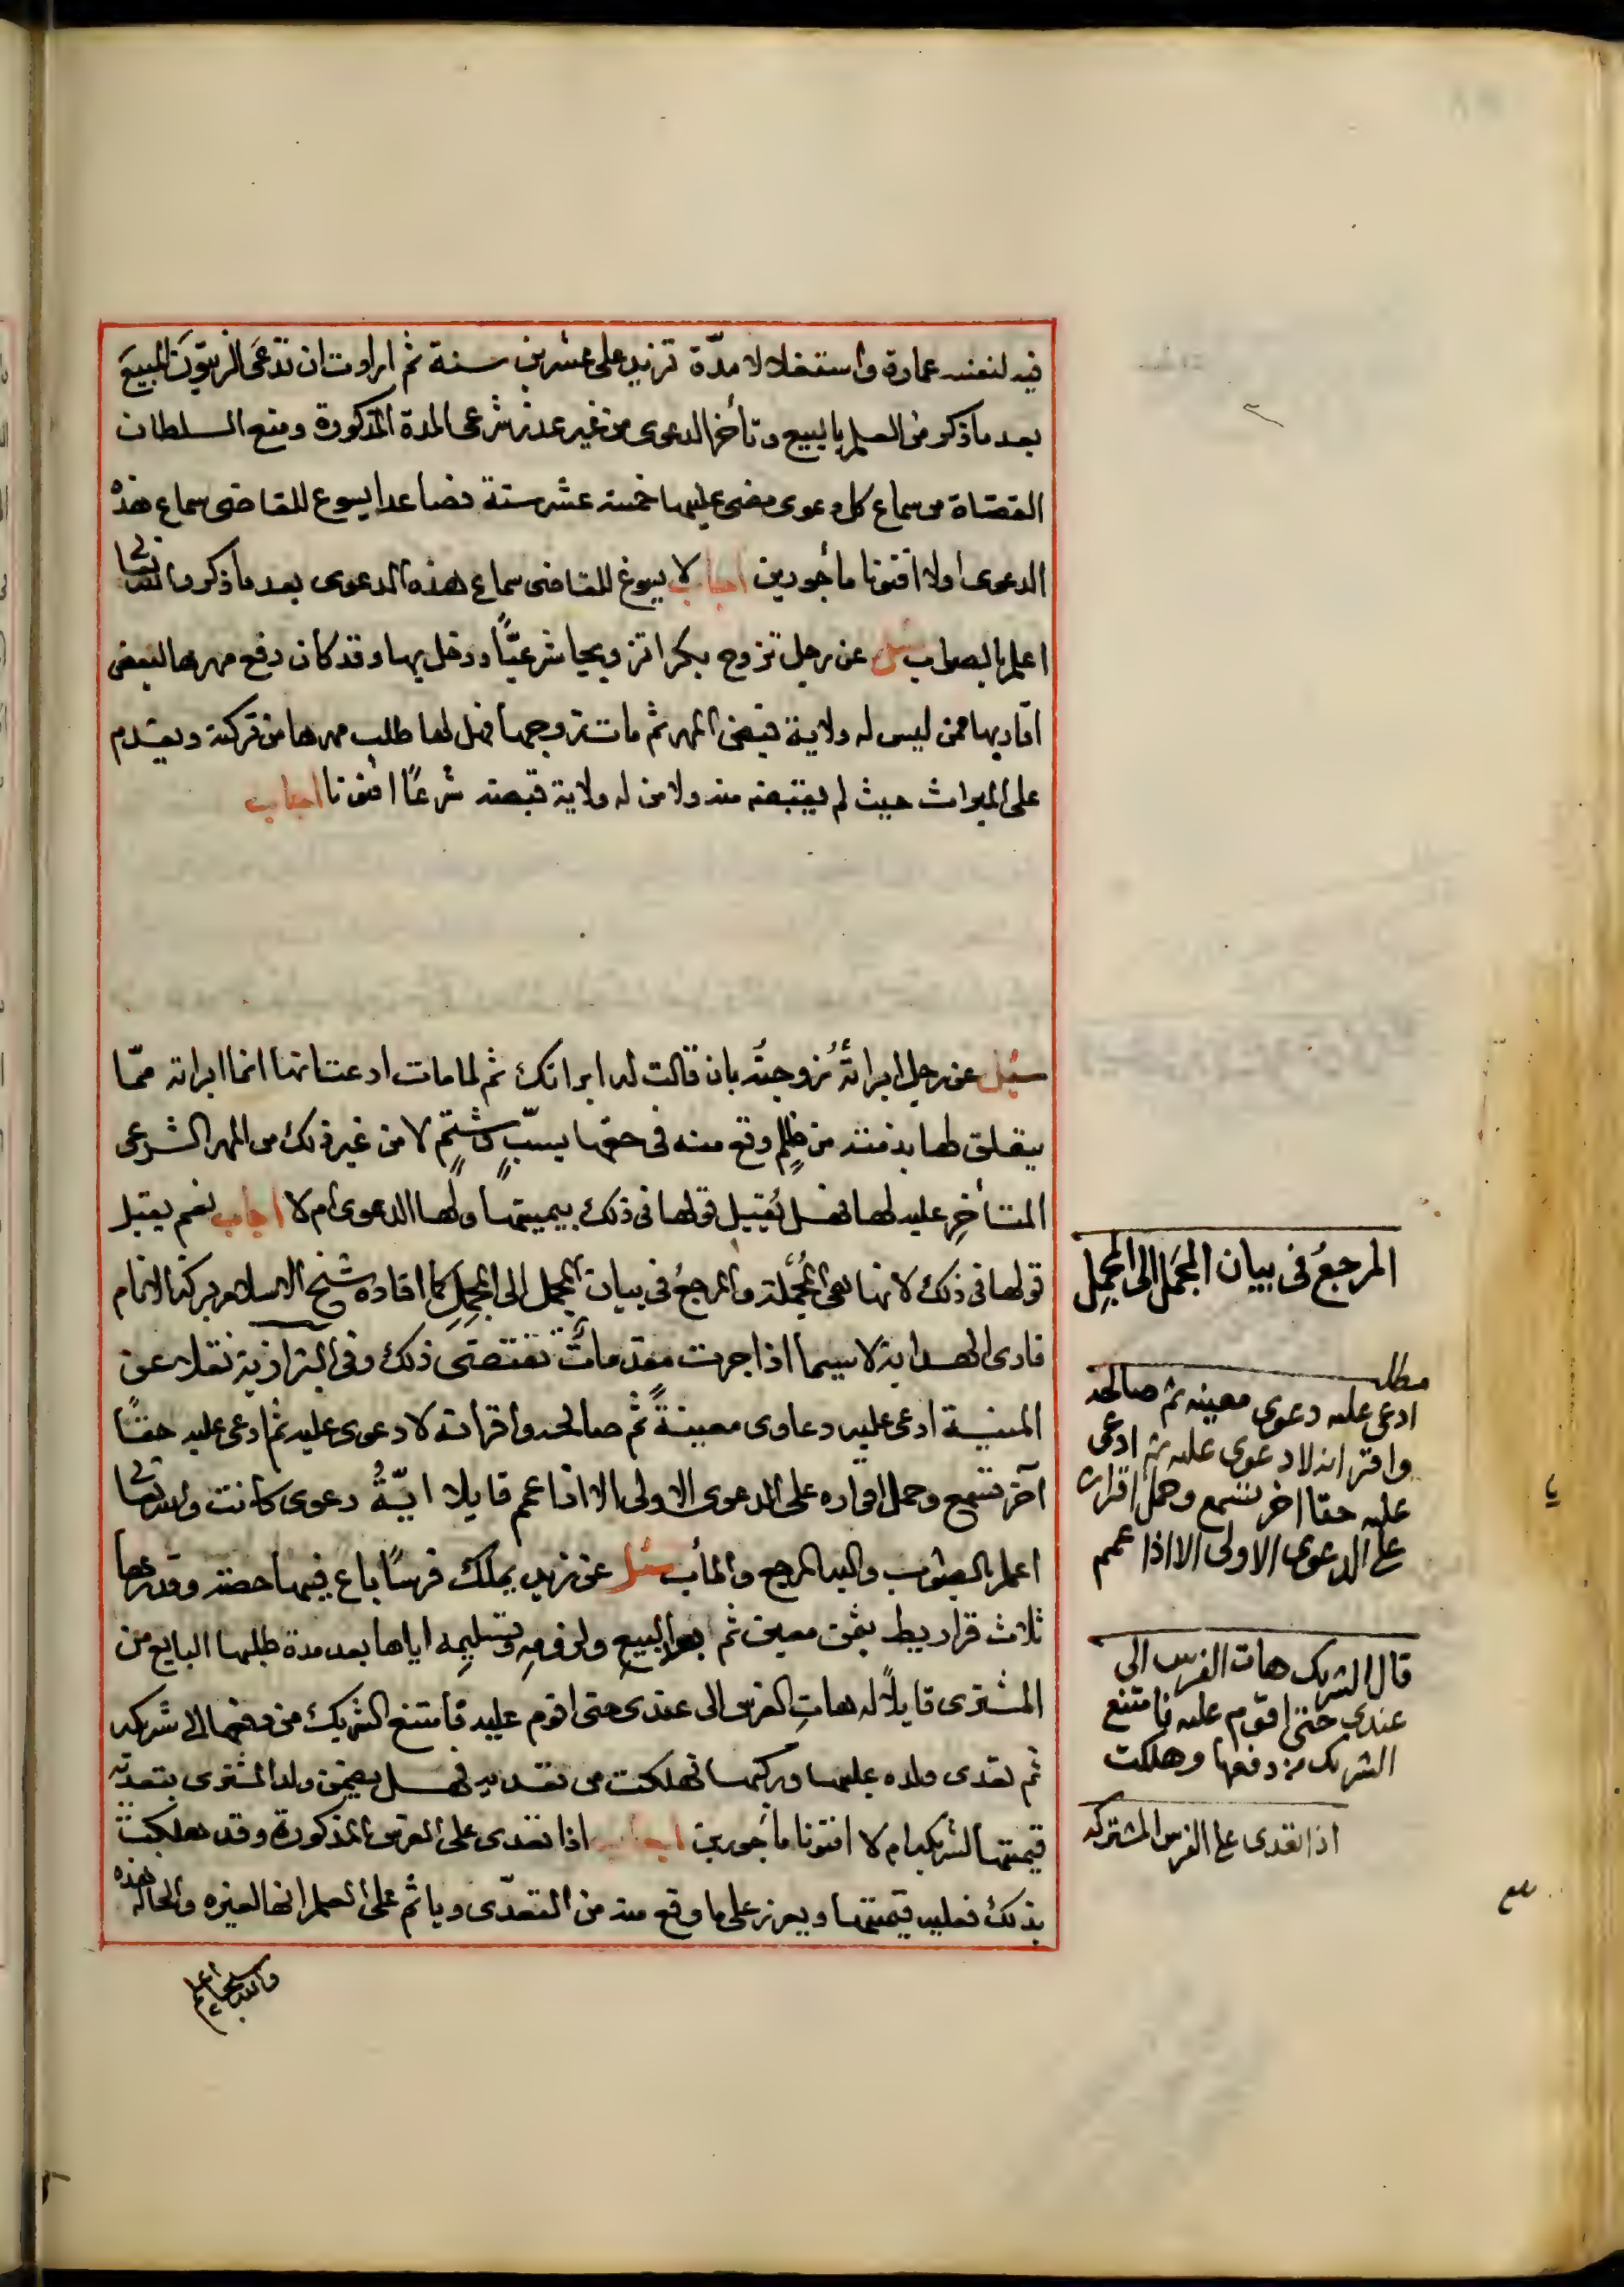 فيه لنفسه عمارة واستغلالا مدّة تزيد على عشرين سنة ثم ارادت ان تدّعى الزيتون المبيع
بعد ما ذكر من العلم بالبيع وتأخر الدعوى من غير عذر شرعى المدة المذكورة ومنع السلطان
القضاة من سماع كل دعوى مضى عليها خمسة عشر سنة فصاعدا يسوغ للقاضى سماع هذه
الدعوى اولا افتونا مأجورين اجاب لا يسوغ للقاضى سماع هذه الدعوى بعد ما ذكر والله تعالى
اعلم بالصواب سئل عن رجل تزوج بكرا تزويجا شرعيًّا ودخل بها وقد كان دفع مهرها لبعض
اقاربها ممن ليس له ولاية قبض المهر ثم مات زوجها فهل لها طلب مهرها من تركته ويقدم
على الميراث حيث لم تقبضه منه ولا من له ولاية قبضه شرعًا افتونا اجاب
سئل عن رجل ابرأتْهُ زوجتُه بان قالت له ابراتك ثم لما مات ادعت انها انما ابراته ممّا
يتعلق لها بذمته من ظلمٍ وقع منه فى حقها بسبٍّ وشتمٍ لا من غير ذلك من المهر الشرعى
المتأخرِ عليه لها فهل يُقبل قولها فى ذلك بيمينها ولها الدعوى ام لا اجاب نعم يقبل
قولها فى ذلك لانها هى المُجْمِلة والمرجعُ فى بيان المجمل الى المجمِل كما افاده شيخ الاسلام بركة الانام
قارى الهداية لا سيما اذا جرت مقدماتٌ تقتضى ذلك وفى البزازية نقلا عن
المنية ادعى عليه دعاوى معينةً ثم صالحه واقر انه لا دعوى عليه ثم ادعى عليه حقًا
آخر تسمع وحمل اقراره على الدعوى الاولى الا اذا عمم قايلا ايّةُ دعوى كانت والله تعالى
اعلم بالصواب واليه المرجع والمأب سئل عن زيد يملك فرسًا باع فيها حصة وقدرها
ثلاث قراريط بثمن معين ثم بعد البيع ولزومِهِ وتسليمِه اياها بعد مدة طلبها البايع من
المشترى قايلًا له هاتِ الفرس الى عندى حتى اقوم عليه فامتنع الشريك من دفعها الى شريكه
ثم تعدى ولده عليها وركبها فهلكت من تعديه فهل يضمن ولد المشترى بتعديه
قيمتها لشريكه ام لا افتونا مأجورين اجاب اذا تعدى على الفرس المذكورة وقد هلكت
بذلك فعليه قيمتها ويعزر على ما وقع منه من التعدّى وياثم على العلم انها لغيره والحالة هذه
والله سبحانه اعلم
المرجعُ فى بيان المجمَل الى المجمِل
مطلب
ادعى عليه دعوى معينه ثم صالحه
واقر انه لا دعوى عليه ثم ادعى
عليه حقا اخر تسمع وحمل اقراره
على الدعوى الاولى الا اذا عمم
قال الشريك هات الفرس الى
عندى حتى اقوم عليه فامتنع
الشريك من دفعها وهلكت
اذا تعدى على الفرس المشتركه